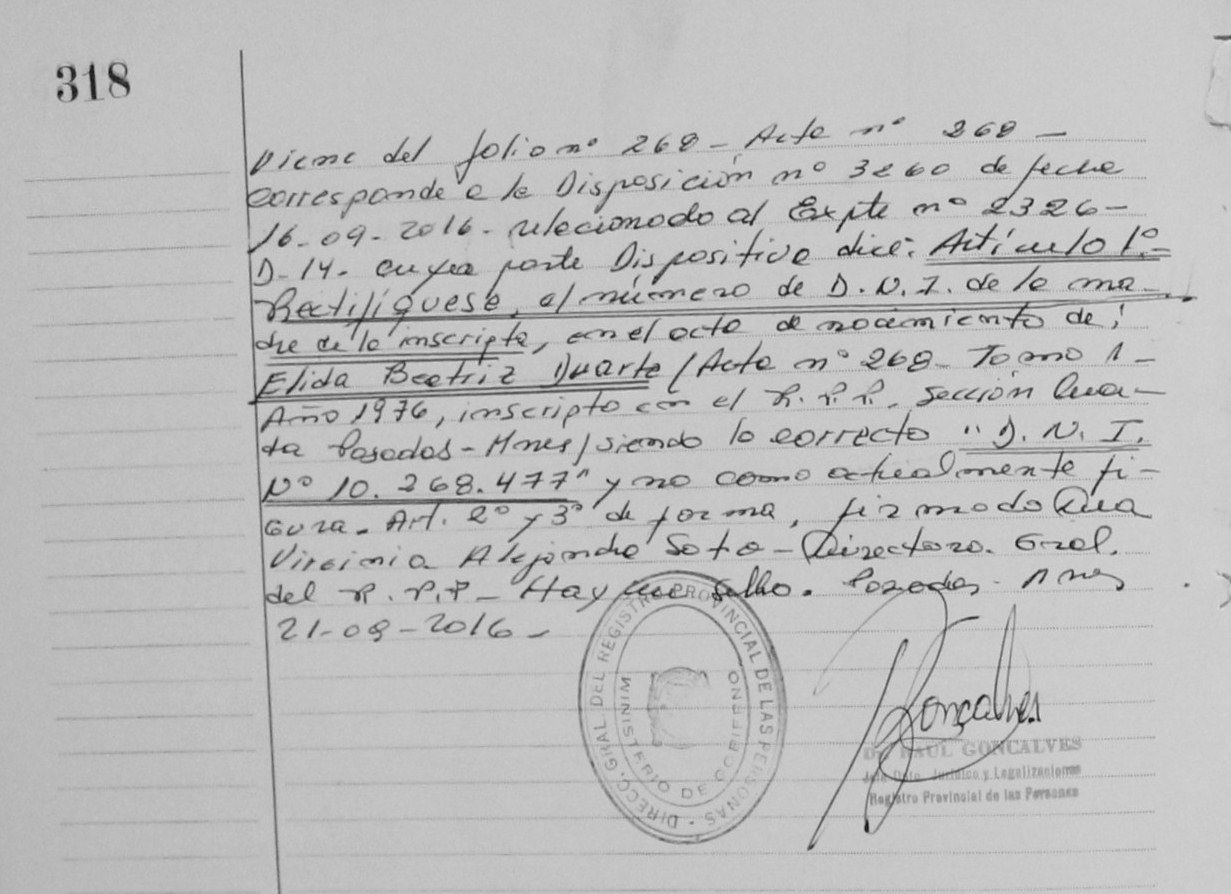 318
Viene del folio nº 268 - Acta nº 268 -
corresponde a la Disposición nº 3260 de fecha
16-09-2016- relacionado al Expte nº 2326-
D-14- cuya parte Dispositiva dice: Artículo 1º-
Rectifíquese, el número de D.N.I. de la ma-
dre de la inscripta, en el acta de nacimiento de:
Elida Beatriz Duarte (Acta nº 268- Tomo 1-
Año 1976, inscripta en el R.P.P. Sección Cuar-
ta Posadas - Mnes) siendo lo correcto "D.N.I.
Nº 10.268.477" y no como actualmente fi-
gura- Art. 2º y 3º de forma, firmado Dra
Virginia Alejandra Soto - Directora. Gral.
del R.P.P - Hay sello. Posadas - Mnes
21-09-2016-
DIRECC. GRAL. DEL REGISTRO PROVINCIAL DE LAS PERSONAS
MINISTERIO DE GOBIERNO
Goncalves
RAUL GONCALVES
Jefe Dpto. Jurídico y Legalizaciones
Registro Provincial de las Personas